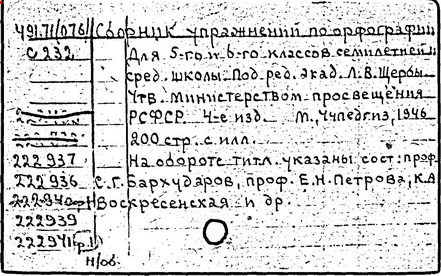 491.71(076) Сборник упражнений по орфографии
С 232 Для 5-го и 6-го классов семилетней и
сред. школы. Под ред. акад. Л.В. Щербы
Утв. Министерством просвещения
РСФСР. 4-е изд. М., Учпедгиз, 1946
200 стр. с илл.
222937 На обороте титл. указаны сост: проф.
222936 С.Г. Бархударов, проф. Е.Н. Петрова, К.А
Воскресенская и др.
222939
222941
н/об.